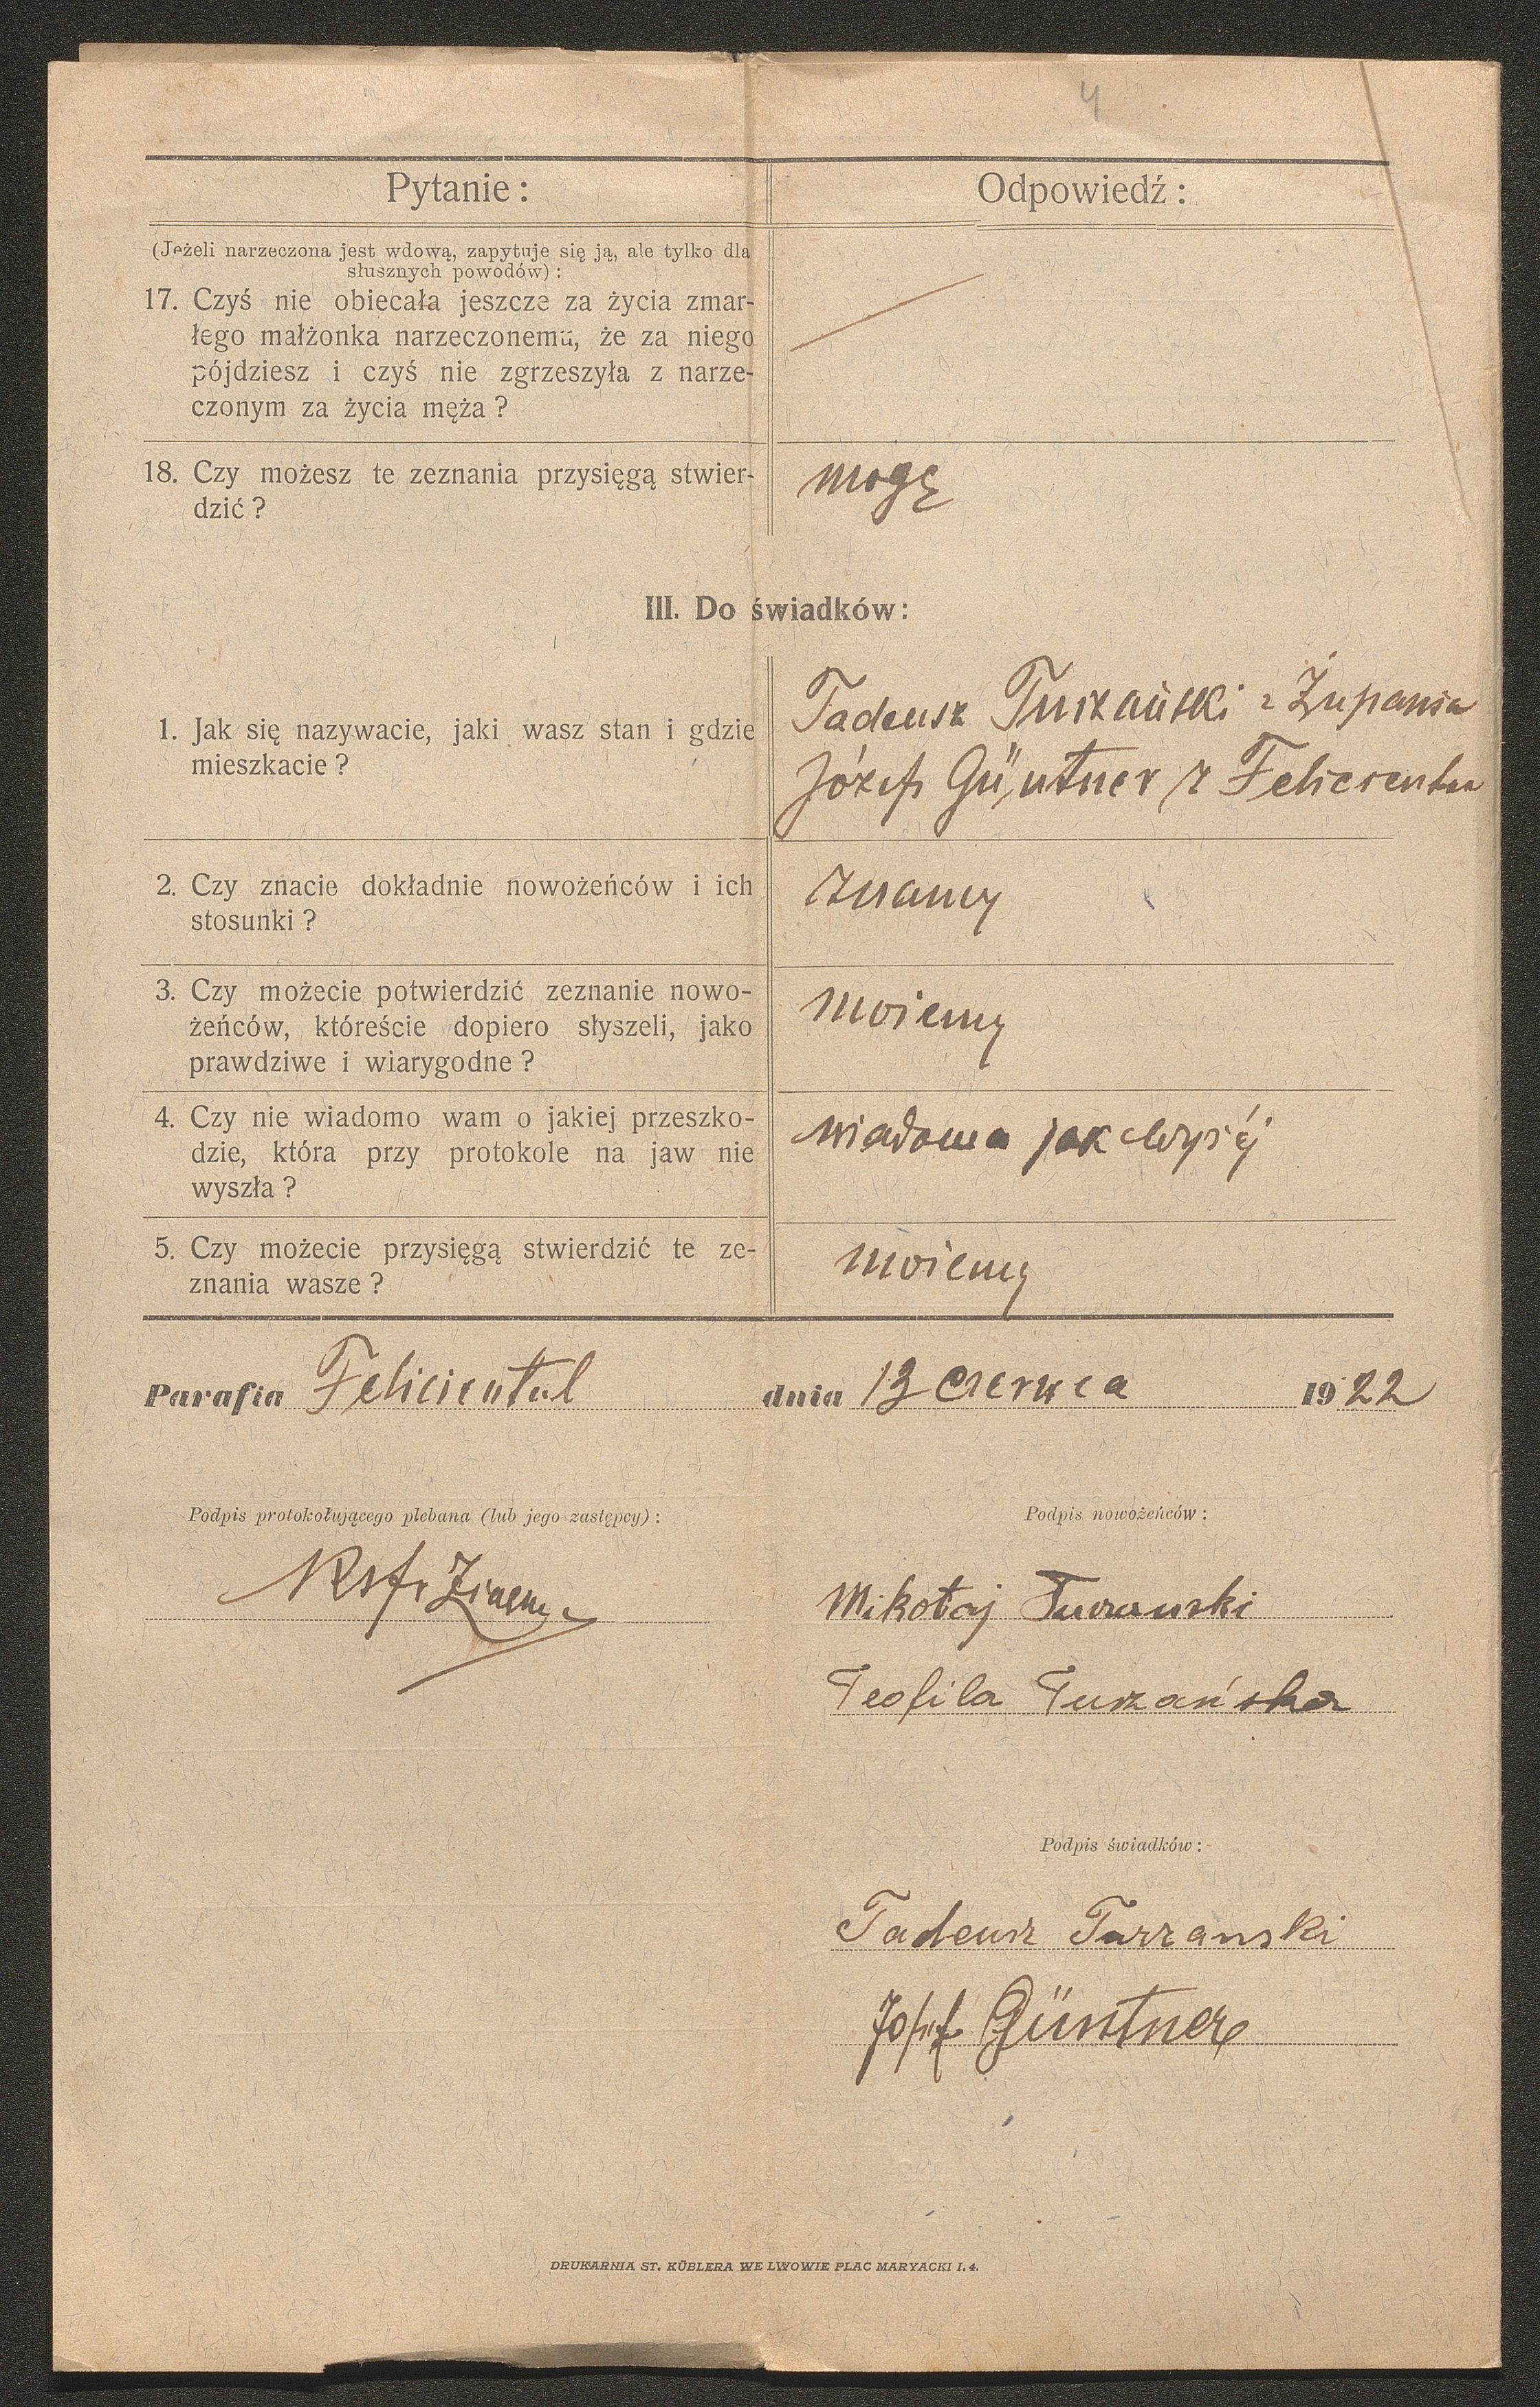 4
Pytanie:
Odpowiedź:
(Jeżeli narzeczona jest wdową, zapytuje się ją, ale tylko dla
słusznych powodów):
17. Czyś nie obiecała jeszcze za życia zmar-
łego małżonka narzeczonemu, że za niego
pójdziesz i czyś nie zgrzeszyła z narze-
czonym za życia męża?
18. Czy możesz te zeznania przysięgą stwier-
dzić?
mogę
III. Do świadków:
1. Jak się nazywacie, jaki wasz stan i gdzie
mieszkacie?
Tadeusz Turzański z Żupania
Józef Güntner z
2. Czy znacie dokładnie nowożeńców i ich
stosunki?
znamy
3. Czy możecie potwierdzić zeznanie nowo-
żeńców, któreście dopiero słyszeli, jako
prawdziwe i wiarygodne?
możemy
4. Czy nie wiadomo wam o jakiej przeszko-
dzie, która przy protokole na jaw nie
wyszła?
wiadoma jak wyżéj
5. Czy możecie przysięgą stwierdzić te ze-
znania wasze?
możemy
Parafia Feliciental dnia 13 czerwca 1922
Podpis protokołującego plebana (lub jego zastępcy):
Podpis nowożeńców:
Mikołaj Turzanski
Teofila Turzańska
Podpis świadków:
Tadeusz Turzanski
Josef Güntner
DRUKARNIA ST. KÜBLERA WE LWOWIE PLAC MARYACKI l. 4.